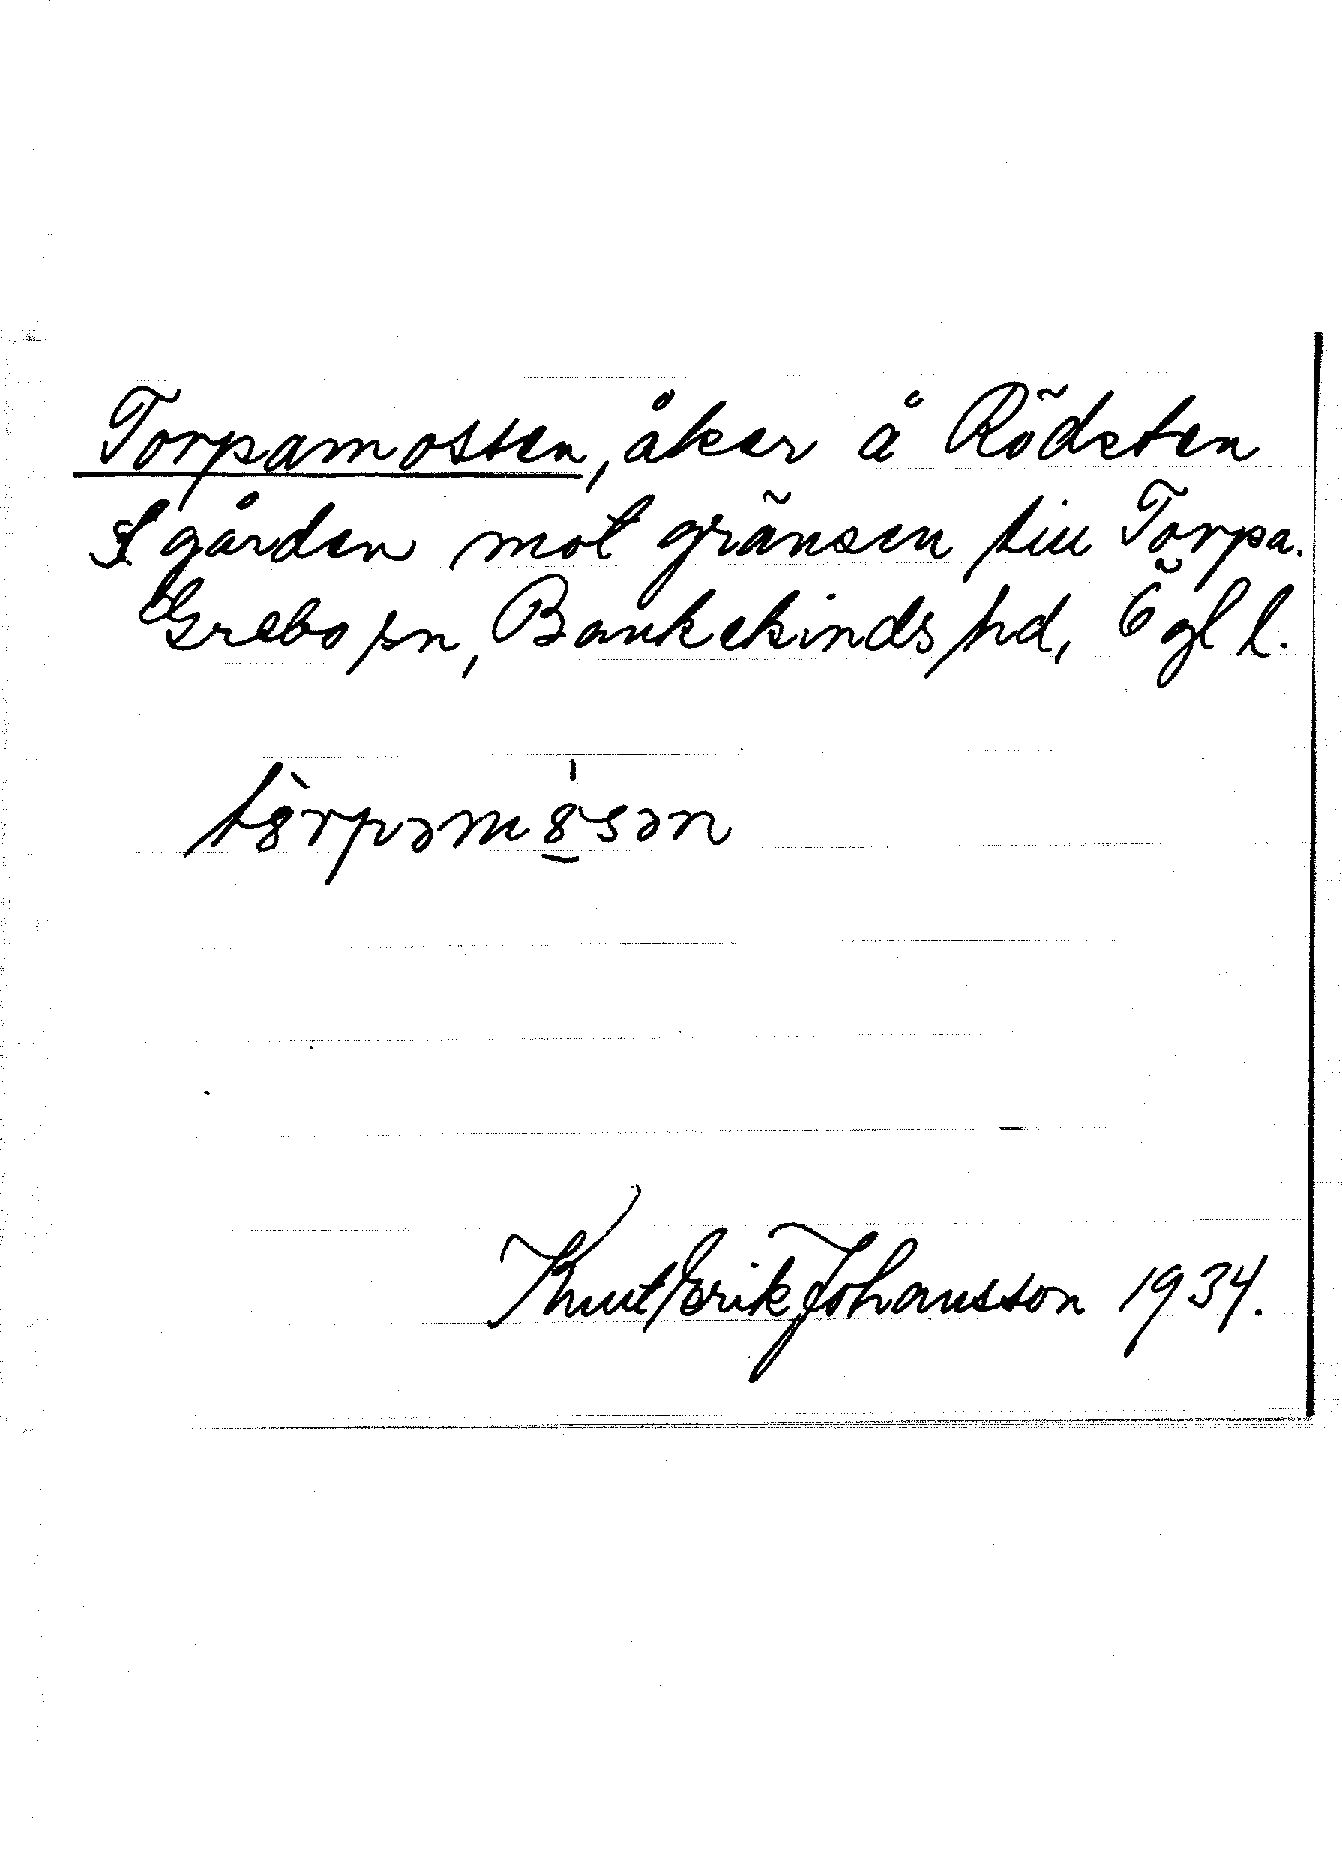 Torpamossen, åker å Rödsten
S gården mot gränsen till Torpa.
Grebo sn, Bankekinds hd, Ögl l.
Knut Erik Johansson 1934.